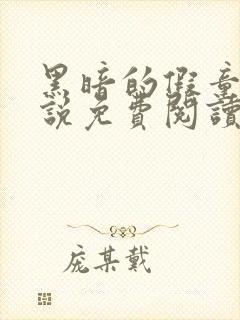 黑暗的假童
說免費閱讀
庞某戴